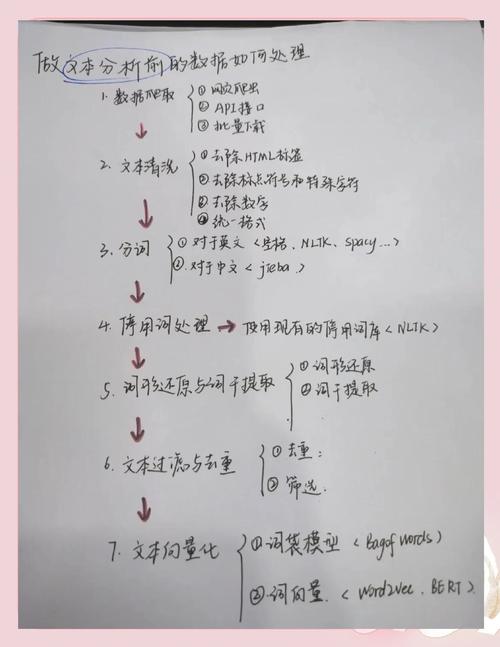 做文本分析前的数据如何处理
1. 数据爬取 ① 网页爬虫
② API接口
③ 批量下载
2. 文本清洗 ① 去除HTML标签
② 去除标点符号和特殊字符
③ 去除数字
④ 统一格式
3. 分词 ① 对于英文 < 空格、NLTK、spacy...>
② 对于中文 < jieba.>
4. 停用词处理 → 使用现有的停用词库 < NLTK>
5. 词形还原与词干提取 ① 词形还原
② 词干提取
6. 文本过滤与去重 ① 去重:
② 筛选.
7. 文本向量化 ① 词袋模型 < Bag of words>
② 词向量. < Word2Vec、BERT>